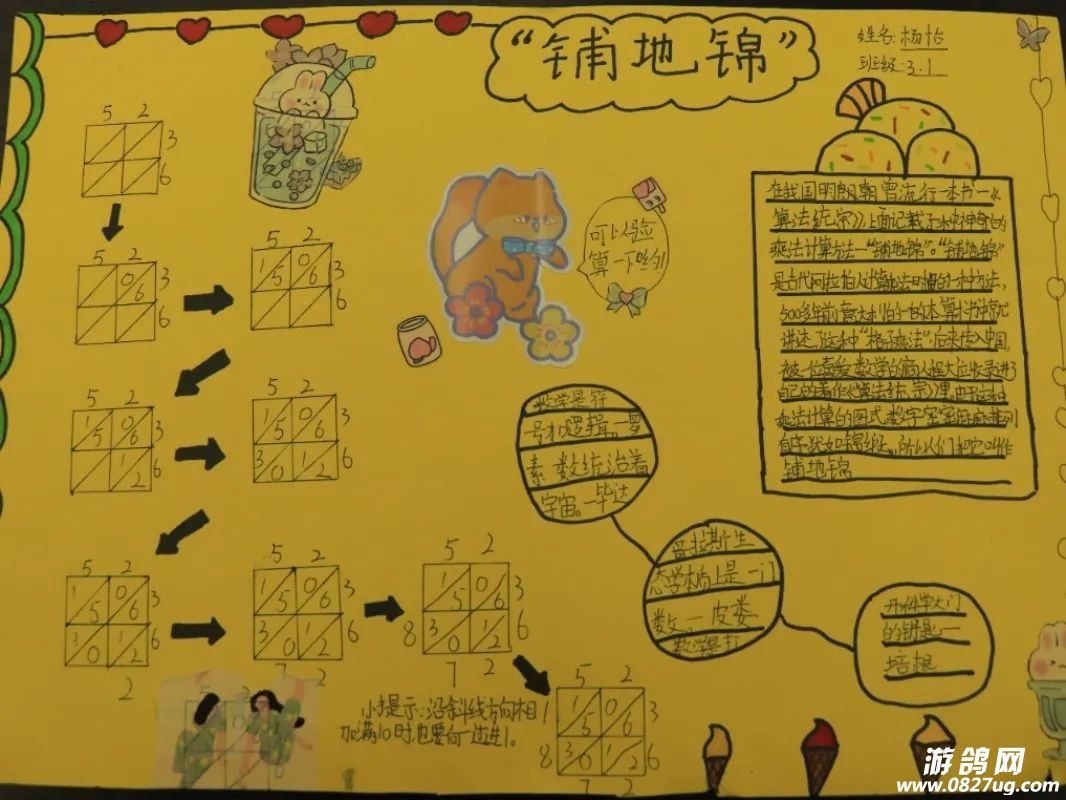 “铺地锦”
姓名:杨怡
班级:3.1
5 2
3
6
5 2
0 3
6
6
5 2
1 0 3
5 6
6
5 2
1 0 3
5 6
1 6
2
5 2
1 0 3
5 6
3 1 6
0 2
5 2
1 0 3
5 6
3 1 6
0 2
2
5 2
1 0 3
5 6
3 1 6
0 2
7 2
5 2
1 0 3
5 6
8 3 1 6
0 2
7 2
5 2
1 1 0 3
5 6
8 3 1 6
0 2
7 2
小提示:沿斜线方向相
加满10时,也要向前一边进1。
可以验
算一下哟
在我国明朝曾流行一本书一《
算法统宗》,上面记载了一种神奇的
乘法计算方法一“铺地锦”。“铺地锦”
是古代阿拉伯人计算乘法时用的一种方法,
500多年前,意大利的一本算术书中就
讲述了这种“格子乘法”,后来传入中国,
被一位喜爱数学的商人程大位收录进了
自己的著作《算法统宗》里。由于这种
乘法计算的图式,数字
犹如锦缎,所以人们把它叫作
铺地锦
数学是符
号和逻辑。一罗
素 数统治着
宇宙。一毕达
哥拉斯 生
态学本质上是一门
数学。一皮娄
数学是打
开科学大门
的钥匙一
培根
游鸽网
www.0827ug.com